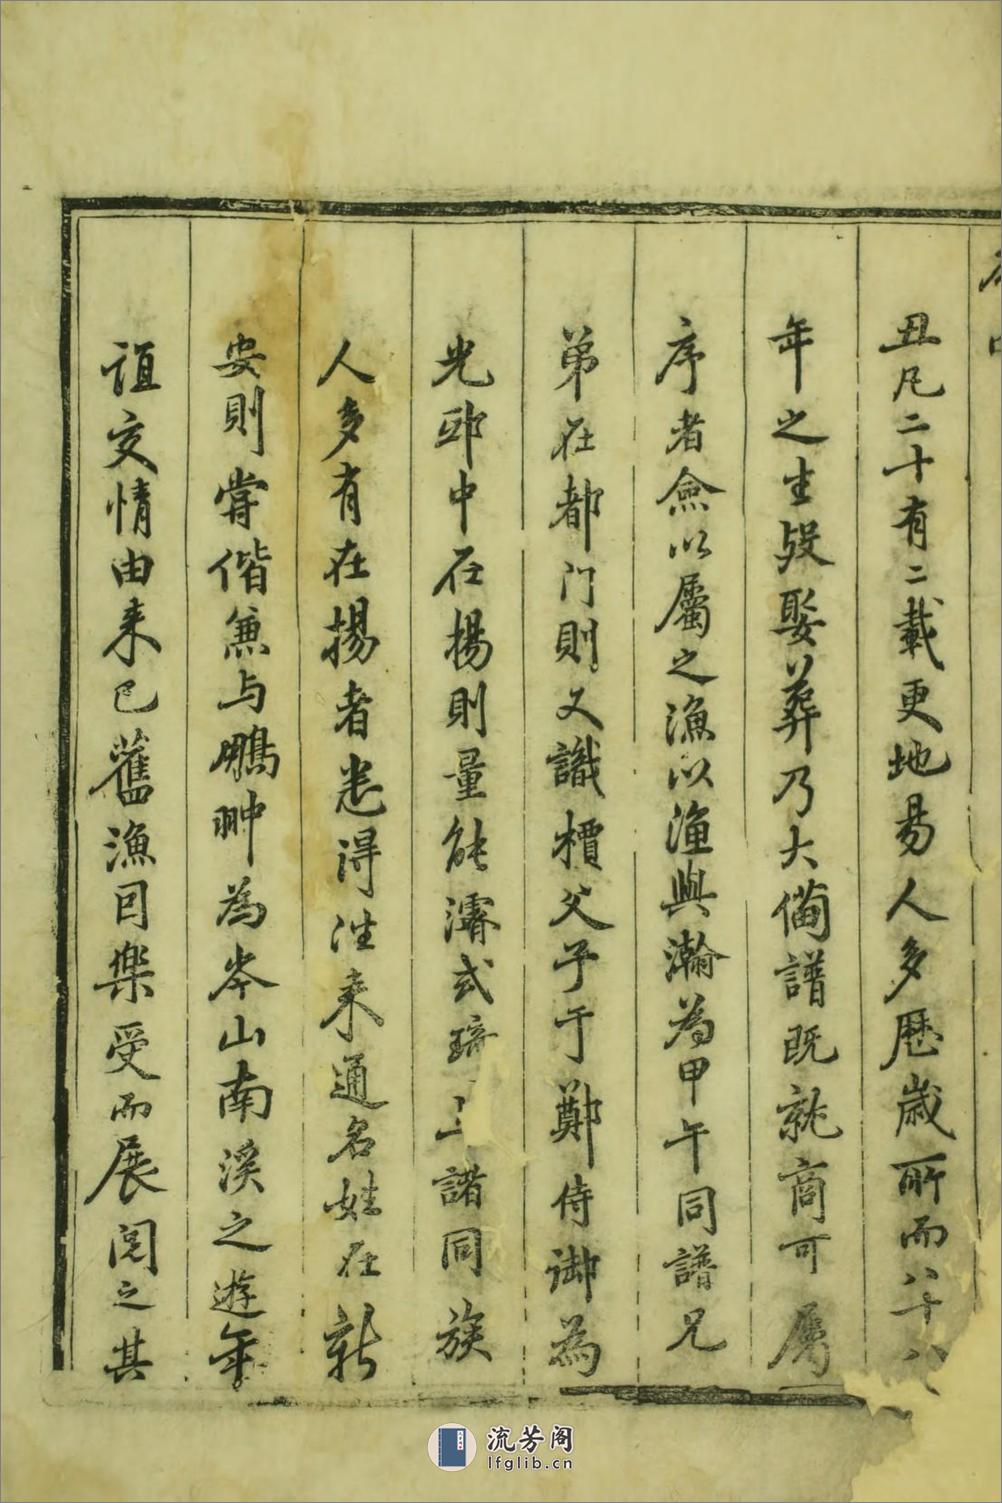 丑凡二十有二載更地易人多歷歲所而八十八
年之生歿娶葬乃大備譜既就商可屬
序者僉以屬之漁以漁與瀚為甲午同譜兄
弟在都門則又識櫝父子于鄭侍御為
光邸中在揚則量能濬式琦諸同族
人多有在揚者悉得往来通名姓在新
安則嘗偕兼与鵬翀為岑山南溪之遊年
誼交情由来已舊漁因樂受而展閱之其
流芳阁
lfglib.cn